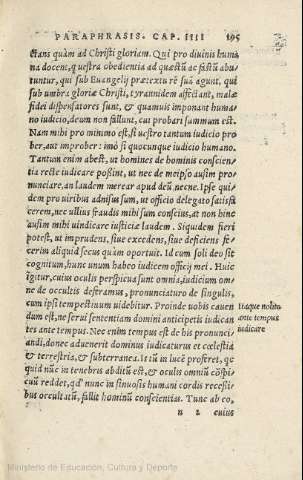 PARAPHRASIS. CAP. IIII 195
ctans quàm ad Christi gloriam. Qui pro diuinis huma
na docent, questra obedientia ad quæstũ ac fastũ abu
tuntur, qui sub Euangelij prætextu rē suã agunt, qui
sub umbra gloriæ Christi, tyrannidem affectant, malæ
fidei dispensatores sunt, & quamuis imponant huma
no iudicio, deum non fallunt, cui probari summum est.
Nam mihi pro minimo est, si uestro tantum iudicio pro
ber, aut improber: imò si quocunque iudicio humano.
Tantum enim abest, ut homines de hominis conscien
tia recte iudicare possint, ut nec de meipso ausim pro
nunciare, an laudem merear apud deũ necne. Ipse qui
dem pro uiribus adnisus sum, ut officio delegato satisfa
cerem, nec ullius fraudis mihi sum conscius, at non hinc
ausim mihi uindicare iustitiæ laudem. Siquidem fieri
potest, ut imprudens, siue excedens, siue deficiens fe
cerim aliquid secus quàm oportuit. Id cum soli deo sit
cognitum, hunc unum habeo iudicem officij mei. Huic
igitur, cuius oculis perspicua sunt omnia, iudicium om
ne de occultis deferamus, pronunciaturo de singulis,
cum ipsi tempestiuum uidebitur. Proinde uobis cauen
dum est, ne serui sententiam domini anticipetis iudican
tes ante tempus. Nec enim tempus est de his pronunci
andi, donec aduenerit dominus iudicaturus et cœlestia
& terrestria, & subterranea. Is tũ in lucē proferet, qc
quid nũc in tenebris abditũ est, & oculis omniũ cōspi
cuũ reddet, qd' nunc in sinuosis humani cordis recessi-
bus occultatũ, fallit hominũ conscientias. Tunc ab eo,
Itaque nolite
ante tempus
iudicare
n 2 cuius
Ministerio de Educación, Cultura y Deporte